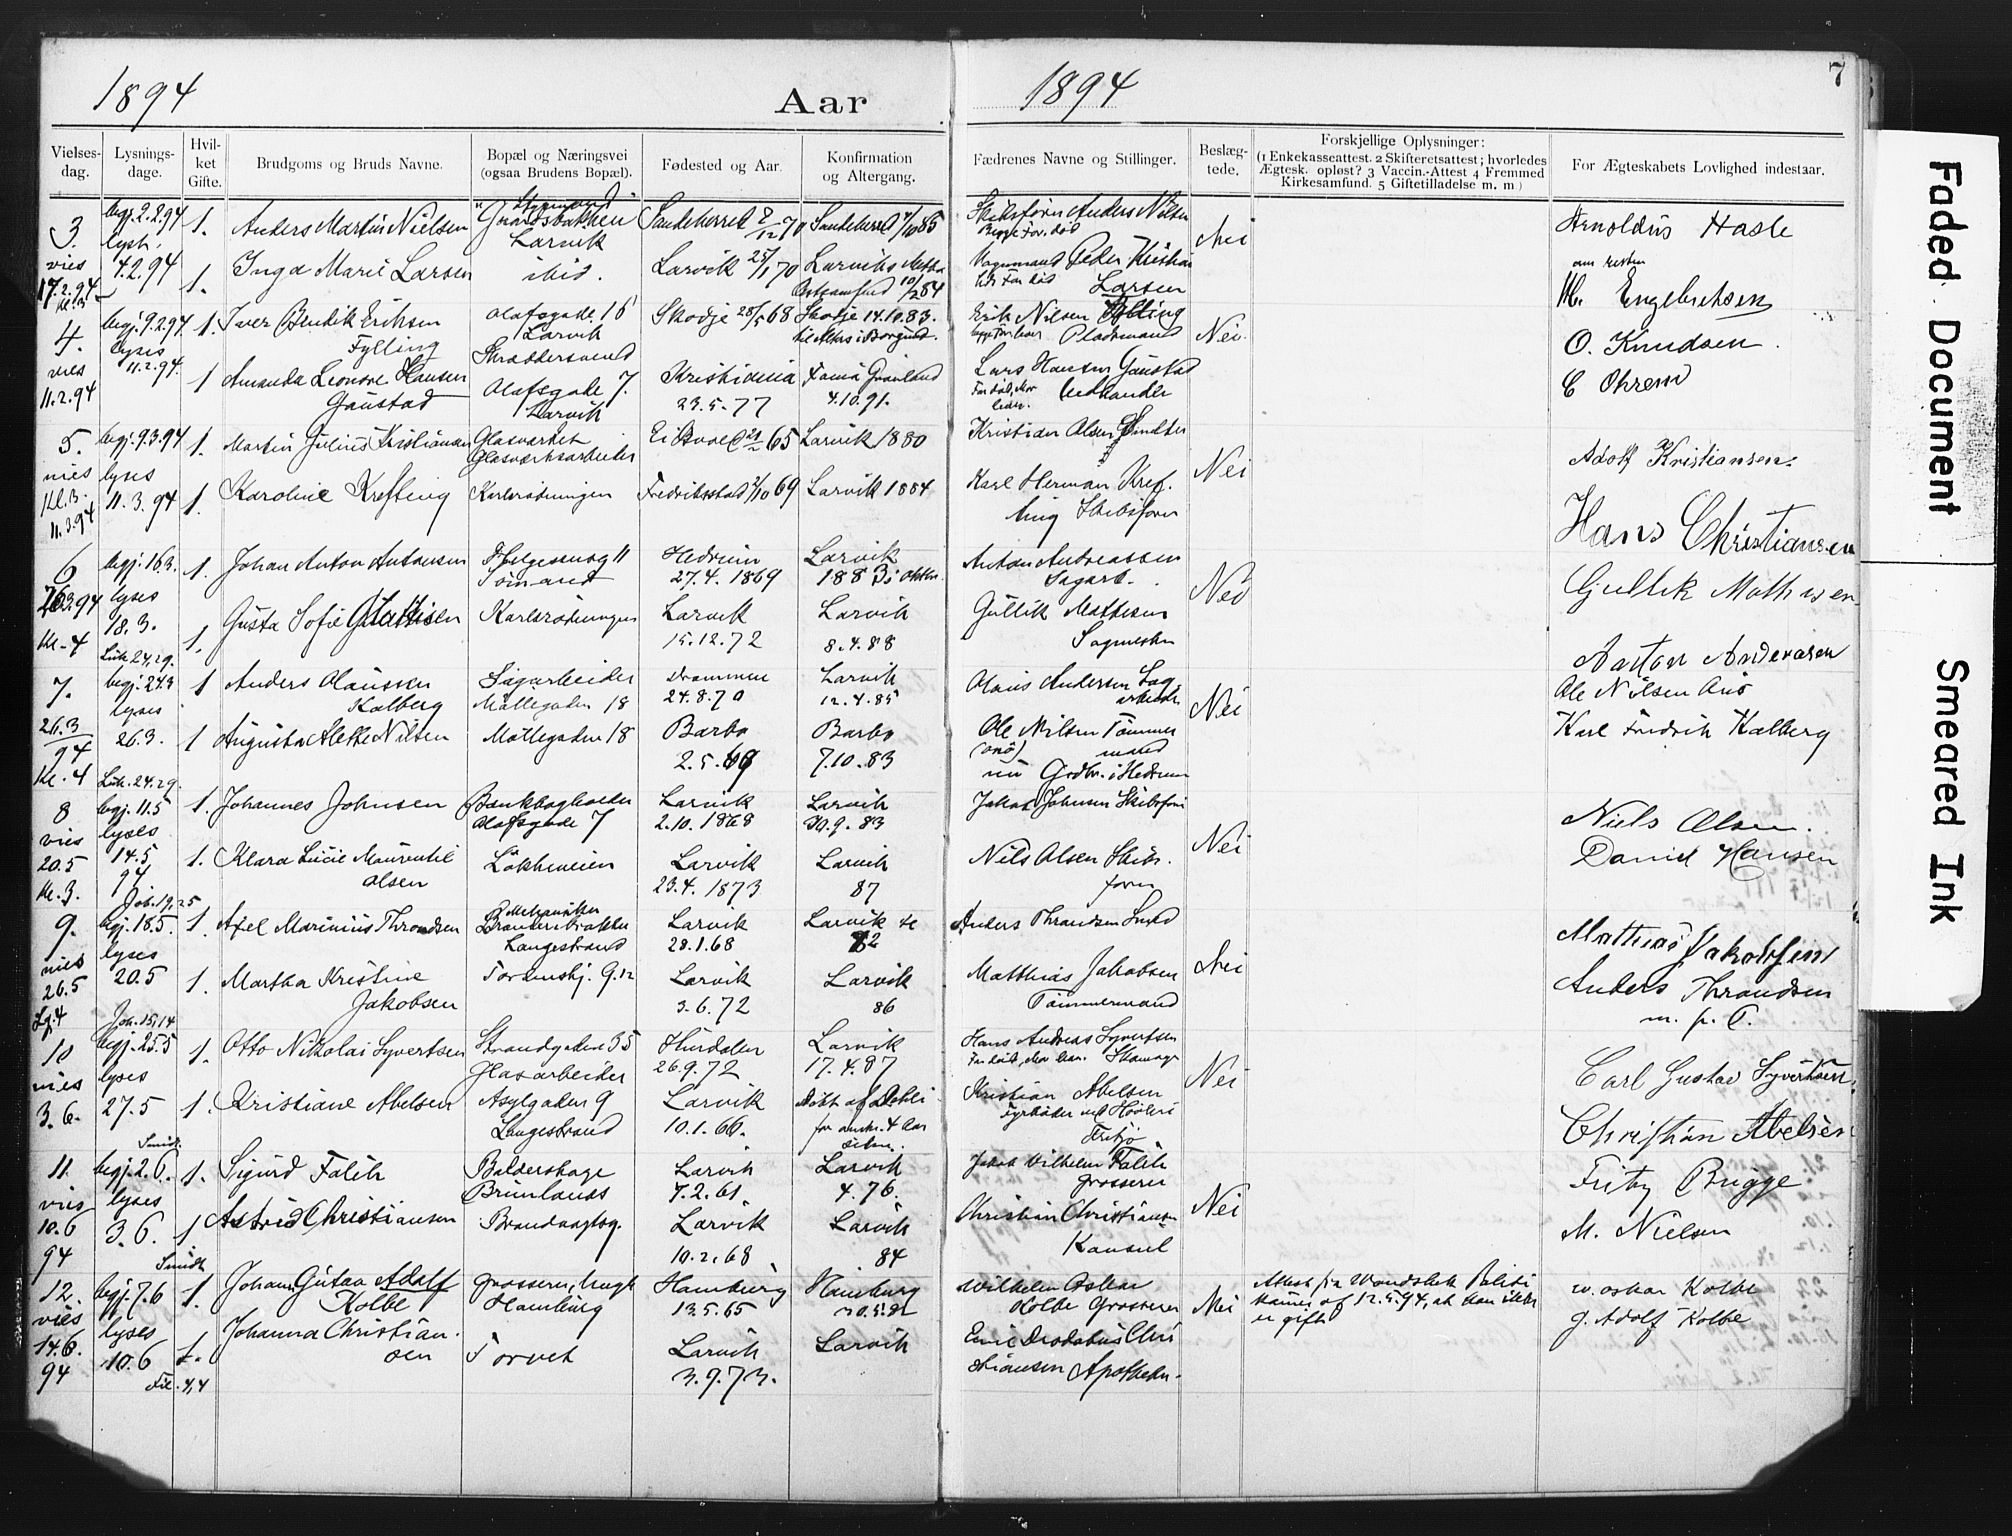 1894 Aar 1894 7
Vielses-dag. Lysnings-dage. Hvil-ket Gifte. Brudgoms og Bruds Navne. Bopæl og Næringsvei (ogsaa Brudens Bopæl). Fødested og Aar. Konfirmation og Altergang. Fædrenes Navne og Stillinger. Beslæg-tede. Forskjellige Oplysninger: (1 Enkekasseattest. 2 Skifteretsattest; hvorledes Ægtesk. opløst? 3 Vaccin.-Attest 4 Fremmed Kirkesamfund. 5 Giftetilladelse m. m) For Ægteskabets Lovlighed indestaar.
3. begj. 2.2.94 1. Anders Martin Nielsen Larvik Sandeherred 2/12 70 Sandeherred 85 Anders Nilsen Nei Arnoldus Hasle
vies 17.2.94 lysn. 4.2.94 1. Inga Marie Larsen ibid. Larvik 25/1 70 Larviks 84 Peder Kristian Larsen M. Engebretsen
4. begj. 9.2.94 1. Iver Bendik Eriksen Fylling Olafsgade 16 Larvik Skræddersvend Skodje 28/5 68 Skodje 14.10.83. Erik Nilsen Fylling Pladsmand Nei. O. Knudsen.
vies 11.2.94 lyses 11.2.94. 1 Amanda Leonore Hansen Gaustad Olafsgade 7. Larvik Kristiania 23.5.77 Grønland 4.10.91. Lars Hansen Gaustad C Ohrem
5. begj. 9.3.94 1. Martin Julius Kristiansen Glasværket Glasværksarbeider Eidsvold 65 Larvik 1880 Kristian Olsen Smelter Nei Adolf Kristiansen.
vies Kl. 3. 11.3.94 lyses 11.3.94 1. Karoline Krefting Karlsrødningen Fredriksstad 2/10 69 Larvik 1884 Karl Herman Kref-ting Skibsfører Hans Christiansen
6 begj. 16.3. 1. Johan Anton Antonsen Sømand Hedrum 27.4.1869 Larvik 1883 Anton Andreassen Sagarb. Nei Gullik Mathisen
Kl. 4 lyses 18.3. Luk. 24,29. 1. Gusta Sofie Mathisen Karlsrødningen Larvik 15.12.72 Larvik 8.4.88 Gullik Mathisen Sagmester Anton Andreasen
7. begj. 24.3 1 Anders Olaussen Kalberg Sagarbeider Møllegaden 18 Drammen 24.8.70 Larvik 12.4.85 Olaus Andersen Sag-arbeider Nei Ole Nilsen Onø
26.3/94 Kl. 4 lyses 26.3. Luk. 24.29. 1 Augusta Alette Nilsen Møllegaden 18 Barbo 2.5.69 Barbo 7.10.83 Ole Nilsen Tømmer-mand (Onø) nu Grdbr. i Hedrum Karl Fredrik Kalberg
8 begj. 11.5 1. Johannes Johnsen Bankbogholder Olafsgade 7 Larvik 2.10.1868 Larvik 30.9.83 Jakob Johnsen Skibsfører Nei Niels Olsen.
vies 20.5 Kl. 3. lyses 14.5 94 Joh. 19,25 1. Klara Lucie Maurentil Olsen Løkkeveien Larvik 23.4.1873 Larvik 87 Nils Olsen Skibs-fører Daniel Hansen
9. begj. 18.5. 1. Axel Marinius Throndsen Mekaniker Langestrand Larvik 28.1.68 Larvik 82 Anders Throndsen Smed Nei Mathias Jakobsen
vies 26.5 lyses 20.5 Joh. 15,14 1. Martha Kristine Jakobsen Larvik 3.6.72 Larvik 86 Matthias Jakobsen Tømmermand Anders Throndsen m. p. P.
10 begj. 25.5 1. Otto Nikolai Syvertsen Strandgaden 55 Glasarbeider Hurdalen 26.9.72 Larvik 17.4.87 Hans Andreas Syvertsen Skomager Nei Carl Gustav Syvertsen.
vies 3.6. lyses 27.5 Smidt. 1. Kristiane Abelsen Asylgaden 9 Langestrand Larvik 10.1.66. Kristian Abelsen Fyrbøder ved Høvleri Fritzø Christian Abelsen
11. begj. 2.6. 1. Sigurd Falch Baldershage Brunlanæs Larvik 7.2.61. Larvik 4.76. Jakob Wilhelm Falch Grosserer Nei Fritz Brügge
vies 10.6 94 lyses 3.6. Smidt 1 Astrid Christiansen Brandvagtsg. Larvik 10.2.68 Larvik 84 Christian Christiansen Konsul M. Nielsen
12. begj. 7.6 1. Johan Gustav Adolf Kolbe Grosserer, Hamburg Hamburg 13.5.65 Hamburg Wilhelm Oskar Kolbe Grosserer Nei Attest fra Wandsbek Politi-kammer af 12.5.94, at han ikke er gift W. Oskar Kolbe
vies 14.6. 94 lyses 10.6 Fil. 4,4 1. Johanna Christian-sen Torvet Larvik 3.9.73. Larvik Christiansen Apotheker. G. Adolf Kolbe
Faded Document
Smeared Ink